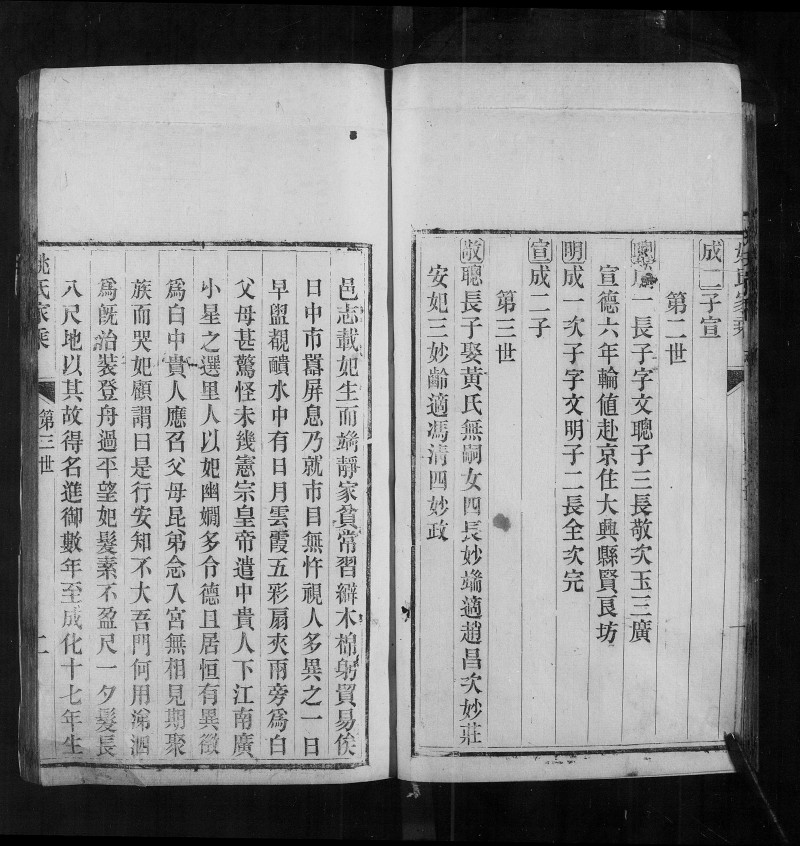 成二子宣
第二世
聰成一長子字文聰子三長敬次玉三廣
宣德六年輪值赴京住大興縣賢良坊
明成一次子字文明子二長全次完
宣成二子
第三世
敬聰長子娶黃氏無嗣女四長妙端適趙昌次妙莊
安妃三妙齡適馮清四妙政
邑志載妃生而端靜家貧常習辮木棉躬貿易俟
日中市囂屏息乃就市目無忤視人多異之一日
早盥覩靧水中有日月雲霞五彩扇夾兩旁為白
父母甚驚怪未幾憲宗皇帝遣中貴人下江南廣
小星之選里人以妃幽嫺多合德且居恒有異徵
為白中貴人應召父母昆弟念入宮無相見期聚
族而哭妃顧謂曰是行安知不大吾門何用涕泗
為旣治裝登舟過平望妃髮素不盈尺一夕髮長
八尺地以其故得名進御數年至成化十七年生
姚氏家乘
第三世
二